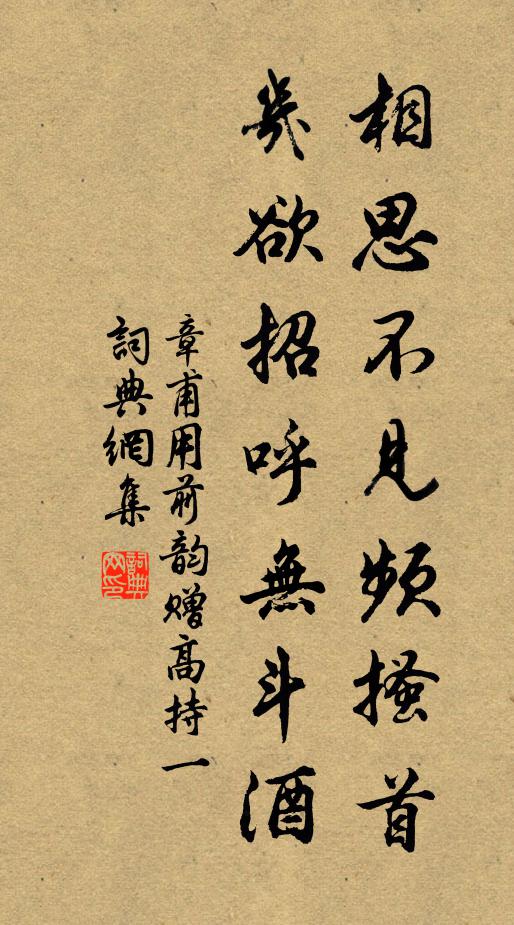 相思不見頻搔首
幾欲招呼無斗酒
章甫用前韵赠高持一
詞典網集
詞典網印